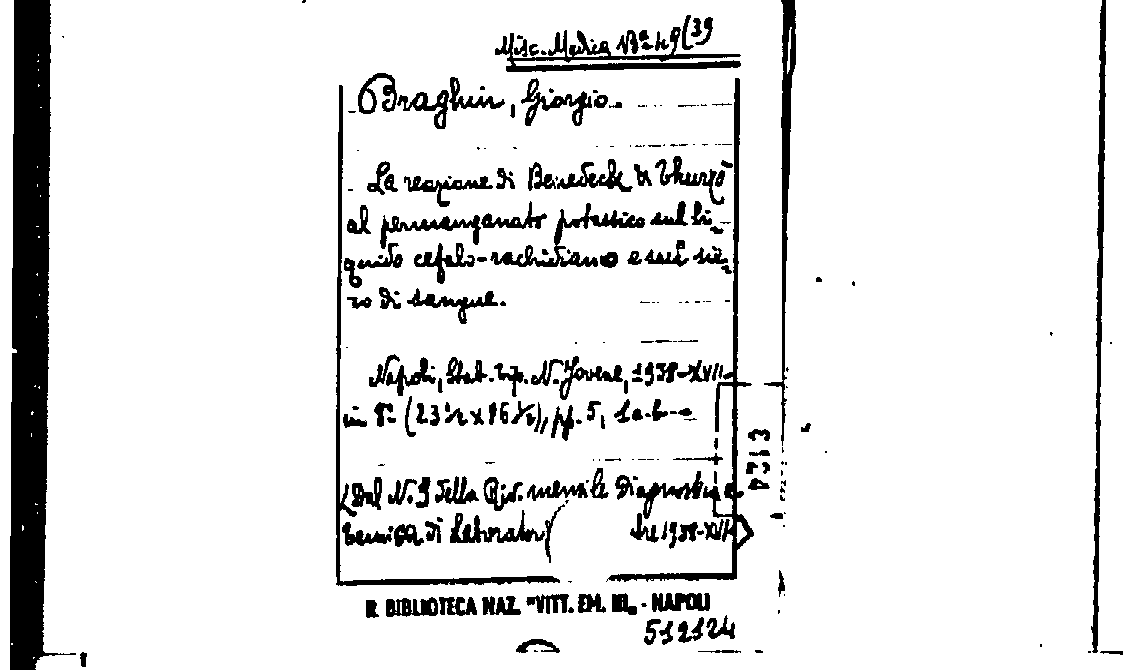 Misc. Medica Ba 49(39
Braghin, Giorgio.
La reazione di Benedeck di Thurzò
al permanganato potassico sul li-
quido cefalo-rachidiano e sul sie-
ro di sangue.
Napoli, Stab. Tip. N. Jovene, 1938-XVII
in 8º (23 ½ x 16 ½), pp. 5, 1 a. b.
(Dal N. 9 della Riv. mensile Diagnostica e
Tecnica di Laboratorio
tre 1938-XVII
R. BIBLIOTECA NAZ. "VITT. EM. III„ - NAPOLI
512124